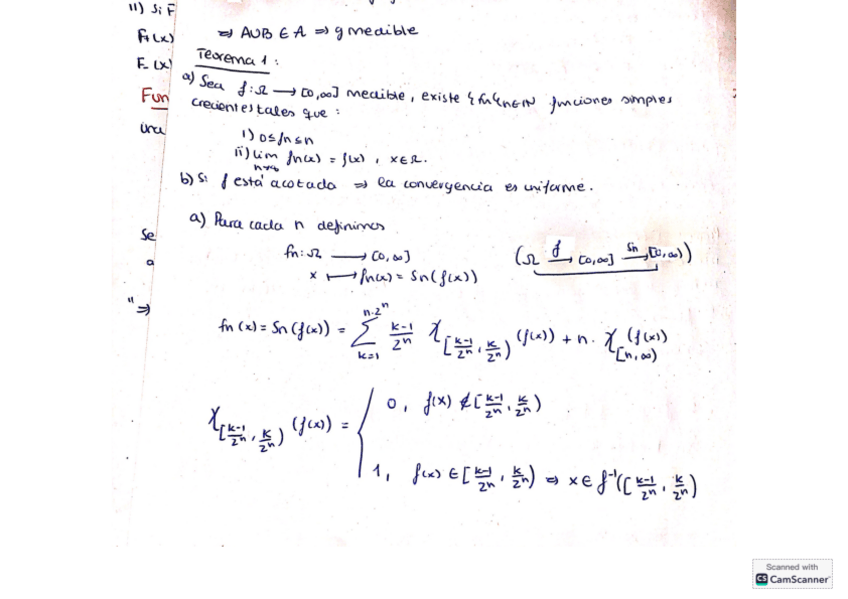 11) Si F
⇒ AUB ∈ A ⇒ g medible
F+(x)
F-(x)
Teorema 1:
a) Sea f: Ω → [0,∞] medible, existe {fn}n∈IN funciones simples
Fun
crecientes tales que:
una
i) 0≤fn≤n
ii) lim n→∞ fn(x) = f(x), x∈Ω.
b) Si f está acotada ⇒ la convergencia es uniforme.
a) Para cada n definimos
Se
a
fn: Ω → [0,∞] (Ω f→ [0,∞] Sn→ [0,∞))
x ↦ fn(x) = Sn(f(x))
"⇒
fn(x) = Sn(f(x)) = ∑_{k=1}^{n·2^n} (k-1)/2^n χ_{[(k-1)/2^n, k/2^n)} (f(x)) + n· χ_{[n,∞)} (f(x))
χ_{[(k-1)/2^n, k/2^n)} (f(x)) = { 0, f(x) ∉ [(k-1)/2^n, k/2^n)
1, f(x) ∈ [(k-1)/2^n, k/2^n) ⇒ x ∈ f^{-1}([(k-1)/2^n, k/2^n)
Scanned with
CS CamScanner